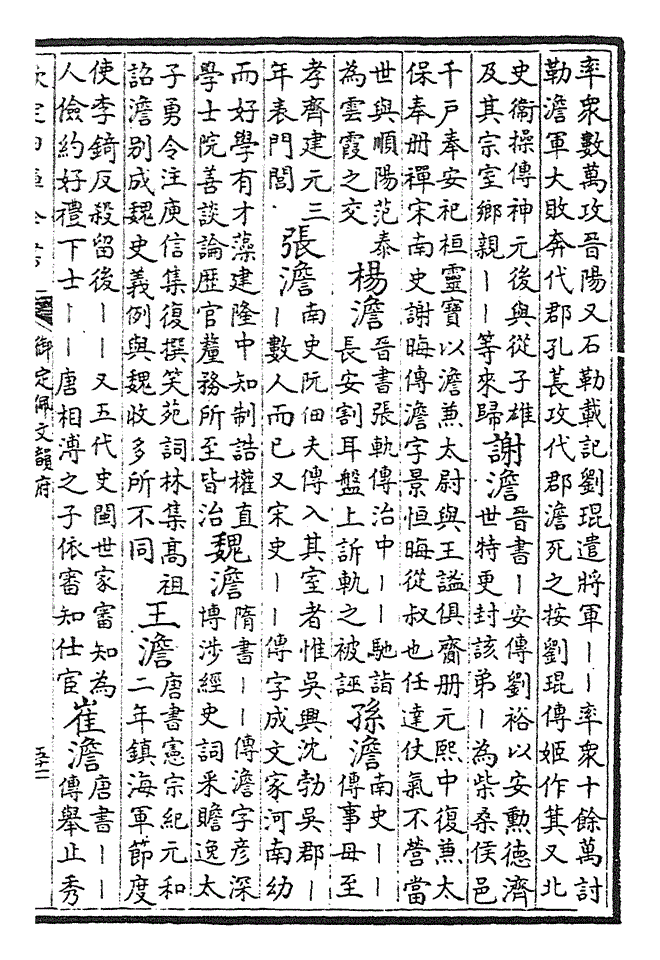 率衆數萬攻晉陽又石勒載記劉琨遣將軍丨丨率衆十餘萬討
勒澹軍大敗奔代郡孔萇攻代郡澹死之按劉琨傳姬作箕又北
史衞操傳神元後與從子雄
及其宗室鄉親丨丨等來歸
謝澹
晉書丨安傳劉裕以安勲德濟
世特更封該弟丨為柴桑侯邑
千戸奉安祀桓靈寶以澹兼太尉與王謐俱齎册元熙中復兼太
保奉册禪宋南史謝晦傳澹字景恒晦從叔也任達仗氣不營當
世與順陽范泰
為雲霞之交
楊澹
晉書張軌傳治中丨丨馳詣
長安割耳盤上訴軌之被誣
孫澹
南史丨丨
傳事母至
孝齊建元三
年表門閭
張澹
南史阮佃夫傳入其室者惟吳興沈勃吳郡丨
丨數人而已又宋史丨丨傳字成文家河南幼
而好學有才藻建隆中知制誥權直
學士院善談論歴官釐務所至皆治
魏澹
隋書丨丨傳澹字彦深
博涉經史詞采贍逸太
子勇令注庾信集復撰笑苑詞林集高祖
詔澹别成魏史義例與魏收多所不同
王澹
唐書憲宗紀元和
二年鎮海軍節度
使李錡反殺留後丨丨又五代史閩世家審知為
人儉約好禮下士丨丨唐相溥之子依審知仕宦
崔澹
唐書丨丨
傳舉止秀
欽定四庫全書
御定佩文韻府